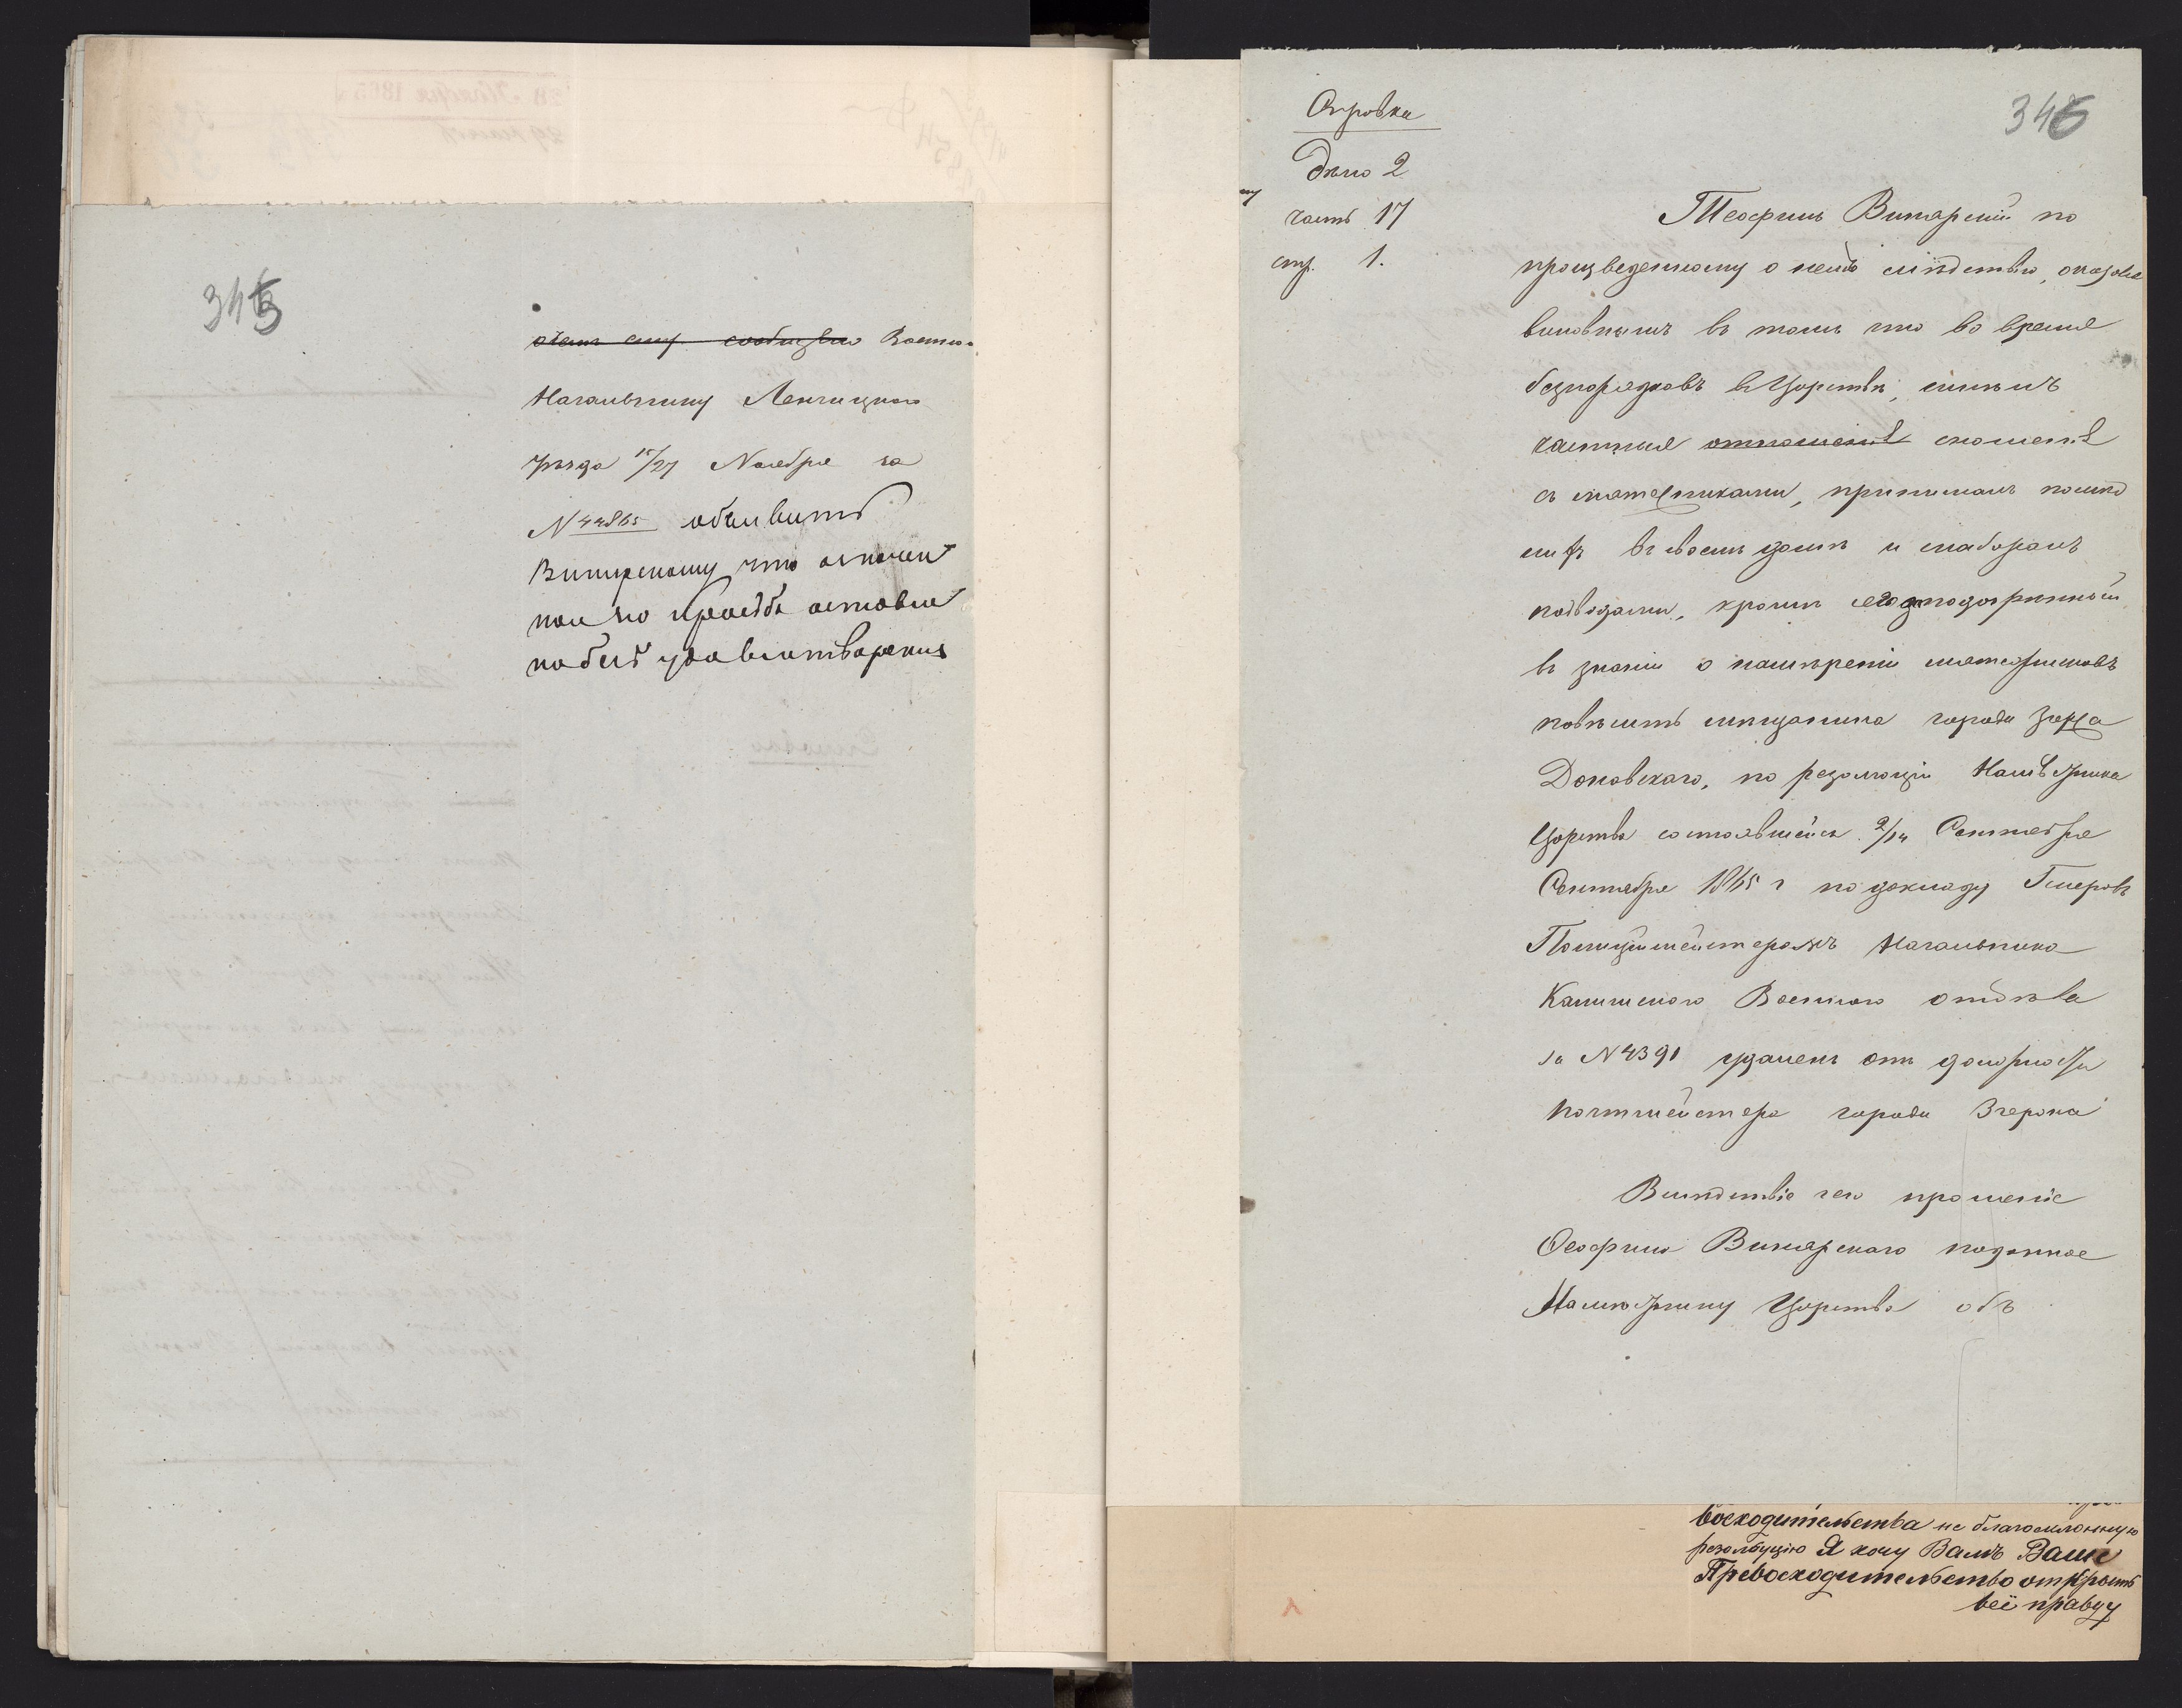 345
о чемъ ему сообщено Военно-
Начальнику Ленчицкаго
уѣзда 15/27 Ноября за
№ 44865 объявить
Винярскому что означен
ная его просьба оставле
на безъ удовлетворенія
346
Справка
Дѣло 2
часть 17
стр. 1.
Теофилъ Винярскій по
произведенному о немъ слѣдствію, оказался
виновнымъ въ томъ что во время
безпорядковъ въ Царствѣ, имѣлъ
частныя отношенія сношенія
съ мятежниками, принималъ
ихъ въ своемъ домѣ и снабжалъ
подводами, кромѣ его подозрѣнный
въ знаніи о намѣреніи мятежниковъ
повѣсить мѣщанина города Згержа
Доновскаго, по резолюціи Намѣстника
Царства состоявшейся 2/14 Сентября
Сентября 1865 г по докладу Генералъ
Полиціймейстеромъ Начальника
Калишскаго Военнаго отдѣла
за № 4391 удаленъ отъ должности
почтмейстера города Згержа
Вслѣдствіе чего прошеніе
Ѳеофила Винярскаго поданное
Намѣстнику Царства объ
восходительства не благосклонную
резолюцію Я хочу Вамъ Ваше
Превосходительство открыть
всё правду